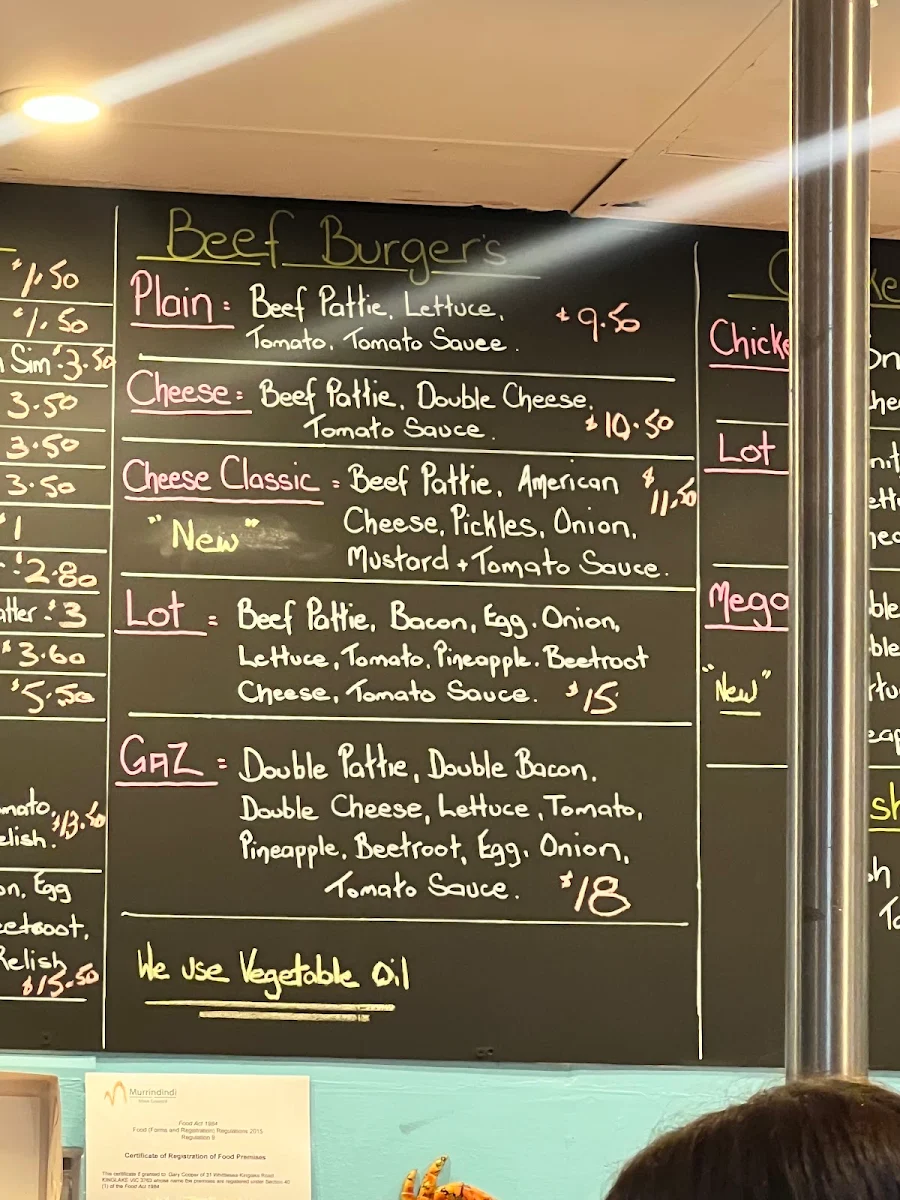 $1.50
$1.50
Sim $3.50
3.50
3.50
3.50
$1
$2.80
$3
$3.60
$5.50
$13.50
Egg
Relish
$15.50
Beef Burger's
Plain = Beef Pattie, Lettuce, $9.50
Tomato, Tomato Sauce.
Cheese = Beef Pattie, Double Cheese,
Tomato Sauce. $10.50
Cheese Classic = Beef Pattie, American $11.50
"New" Cheese, Pickles, Onion,
Mustard + Tomato Sauce.
Lot = Beef Pattie, Bacon, Egg, Onion,
Lettuce, Tomato, Pineapple, Beetroot
Cheese, Tomato Sauce. $15
GAZ = Double Pattie, Double Bacon,
Double Cheese, Lettuce, Tomato,
Pineapple, Beetroot, Egg, Onion,
Tomato Sauce. $18
We use Vegetable Oil
Chicke
Lot
Mega
"New"
Murrindindi
Shire Council
Food Act 1984
Food (Forms and Registration) Regulations 2015
Regulation 9
Certificate of Registration of Food Premises
This certificate if granted to Gary Cooper of 31 Whittlesea-Kinglake Road
KINGLAKE VIC 3763 whose name the premises are registered under Section 40
(1) of the Food Act 1984